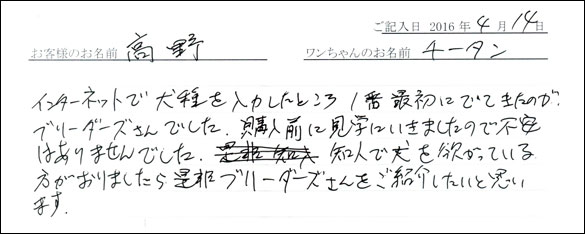 ご記入日 2016年4月14日
お客様のお名前 高野 ワンちゃんのお名前 チータン
インターネットで犬種を入力したところ1番最初にでてきたのが
ブリーダーズさんでした。購入前に見学にいきましたので不安
はありませんでした。是非 知人 知人で犬を欲がっている
方がおりましたら是非ブリーダーズさんをご紹介したいと思い
ます。